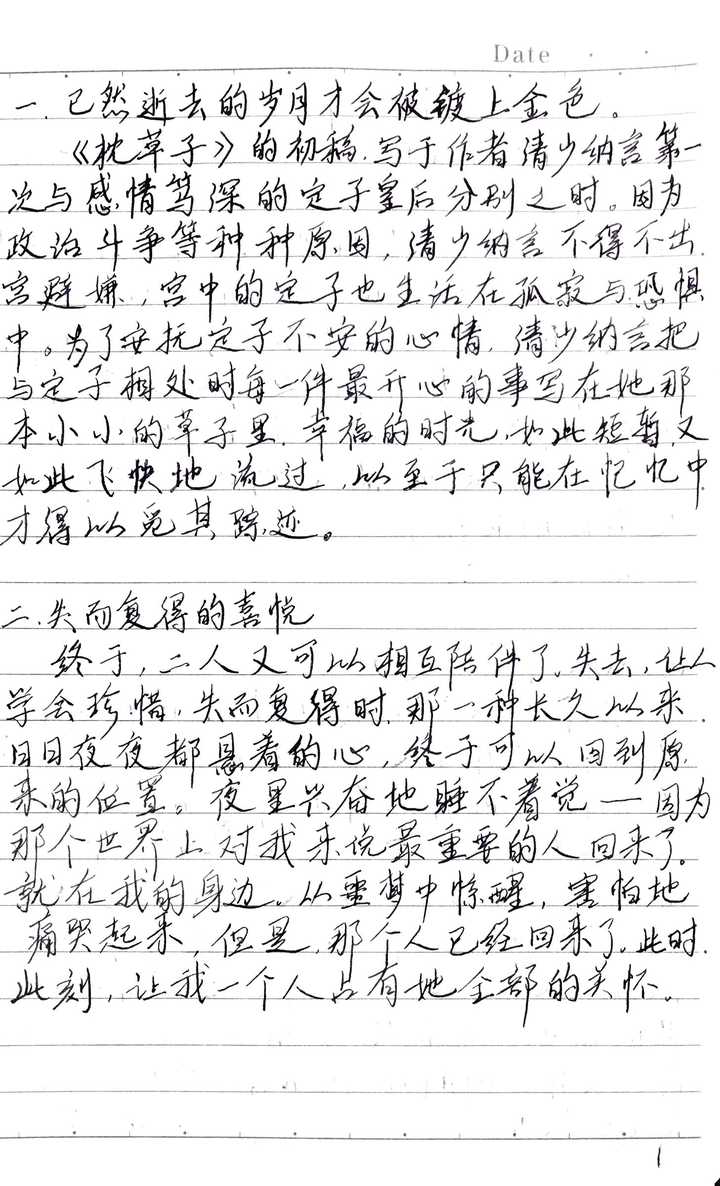 Date
一.已然逝去的岁月才会被镀上金色。
《枕草子》的初稿,写于作者清少纳言第一
次与感情笃深的定子皇后分别之时。因为
政治斗争等种种原因,清少纳言不得不出
宫避嫌,宫中的定子也生活在孤寂与恐惧
中。为了安抚定子不安的心情,清少纳言把
与定子相处时每一件最开心的事写在她那
本小小的草子里.幸福的时光,如此短暂,又
如此飞快地流过,以至于只能在忆忆中
才得以觅其踪迹。
二.失而复得的喜悦
终于,二人又可以相互陪伴了。失去,让人
学会珍惜,失而复得时,那一种长久以来
日日夜夜都悬着的心,终于可以回到原
来的位置。夜里兴奋地睡不着觉—因为
那个世界上对我来说最重要的人回来了。
就在我的身边。从噩梦中惊醒,害怕地
痛哭起来,但是,那个人已经回来了,此时
此刻,让我一个人占有她全部的关怀。
1